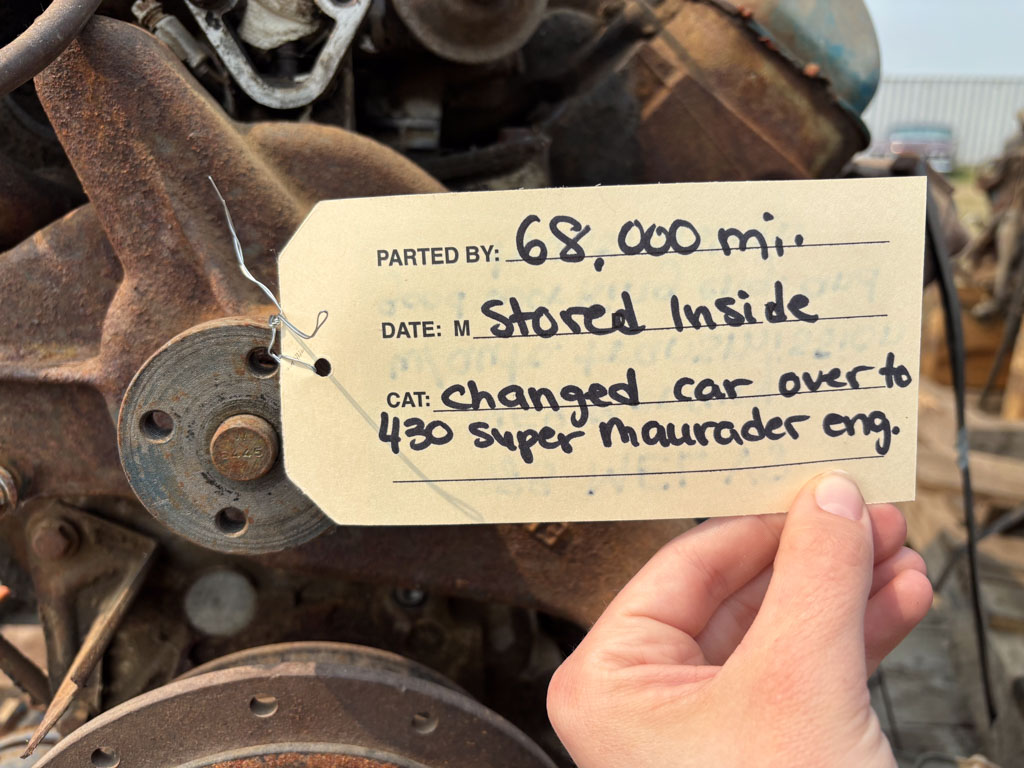 PARTED BY: 68,000 mi.
DATE: M Stored Inside
CAT: changed car over to
430 super maurader eng.